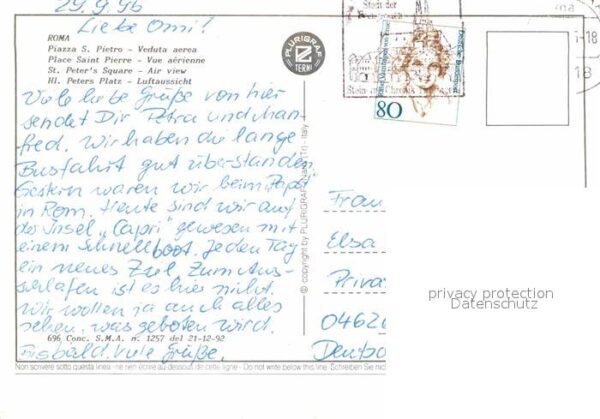 29.9.96
Liebe Omi!
ROMA
Piazza S. Pietro - Veduta aerea
Place Saint Pierre - Vue aérienne
St. Peter's Square - Air view
Hl. Peters Platz - Luftaussicht
PLURIGRAF
TERNI
Stadt der
80
Deutsche Bundespost
18
-18
Viele liebe Grüße von hier
sendet Dir Petra und Man-
fred. Wir haben die lange
Busfahrt gut überstanden
Gestern waren wir beim Papst
in Rom. Heute sind wir auf
der Insel "Capri" gewesen mit
einem Schnellboot. Jeden Tag
ein neues Ziel. Zum Aus-
schlafen ist es hier nicht.
Wir wollen ja auch alles
sehen, was geboten wird.
696 Conc. S.M.A. n. 1257 del 21-12-92
Bis bald. Viele Grüße.
© copyright by PLURIGRAF Narni (Tr) - Italy
Frau
Elsa
Priva
privacy protection
Datenschutz
0462
Deutsc
Non scrivere sotto questa linea - ne rien écrire au dessous de cette ligne - Do not write below this line - Schreiben Sie nicht